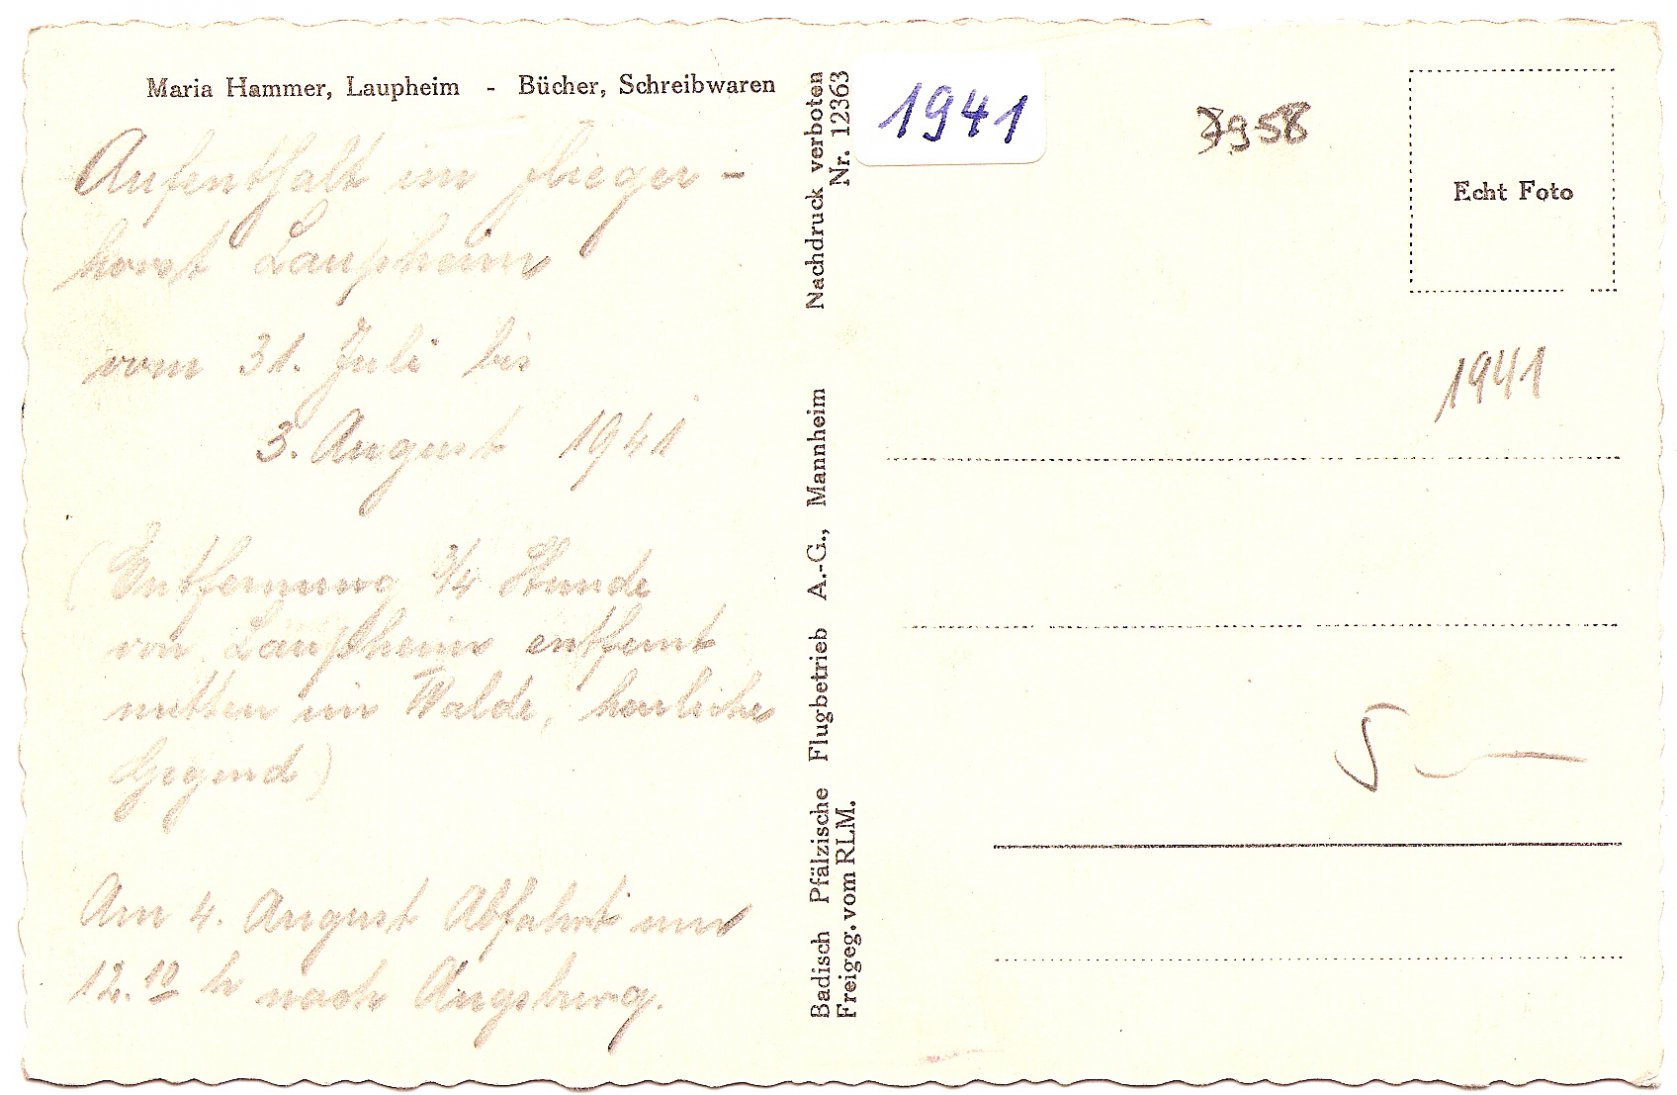 Maria Hammer, Laupheim - Bücher, Schreibwaren
Aufenthalt im Flieger-
horst Laupheim
vom 31. Juli bis
3. August 1941
(Entfernung 3/4 Stunde
von Laupheim entfernt
mitten im Walde, herrliche
Gegend)
Am 4. August Abfahrt um
12.10 h nach Augsburg.
Badisch Pfälzische Flugbetrieb A.-G., Mannheim Nachdruck verboten
Freigeg. vom RLM. Nr. 12363
1941
7958
Echt Foto
1941
5